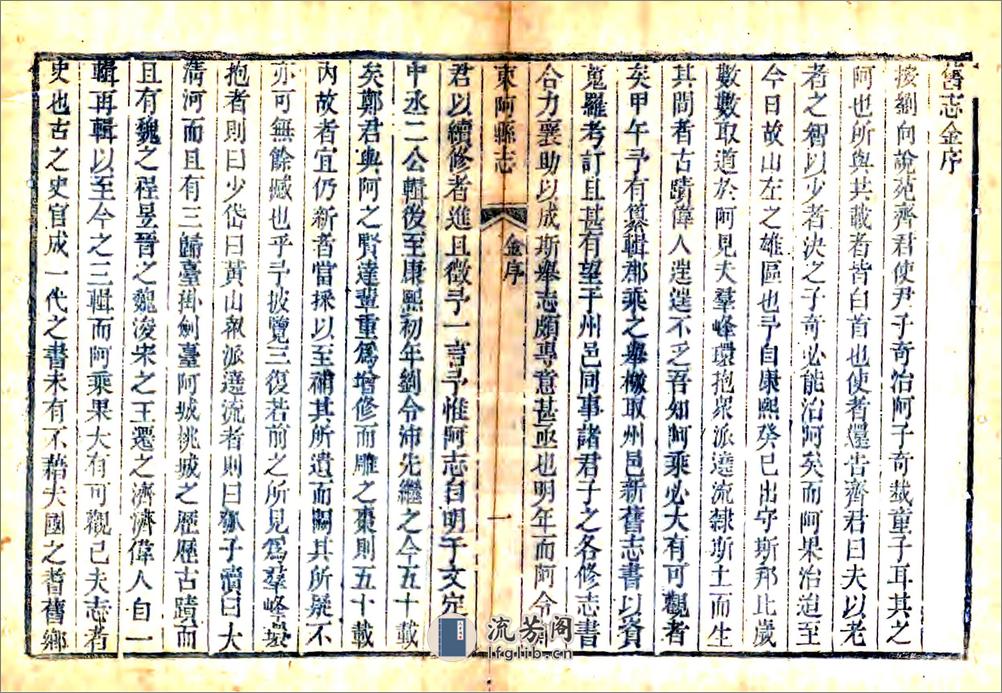 舊志金序
按劉向說苑齊君使尹子奇治阿子奇載童子耳其之
阿也所與共載者皆白首也使者還告齊君曰夫以老
者之智以少者決之子奇必能治阿矣而阿果治迨至
今日故山左之雄區也予自康熙癸巳出守斯邦比歲
數數取道於阿見夫羣峰環抱衆派遶流隸斯土而生
其間者古蹟偉人迬迬不乏吾知阿乘必大有可觀者
矣甲午予有纂輯郡乘之舉檄取州邑新舊志書以資
蒐羅考訂且甚有望于州邑同事諸君子之各修志書
合力襄助以成斯舉志願專意甚亟也明年而阿令
東阿縣志
金序
一
君以續修者進且徵予一言予惟阿志自明于文定
中丞二公輯後至康熙初年劉令沛先繼之今五十載
矣鄭君與阿之賢達輩重爲增修而雕之棗則五十載
內故者宜仍新者當採以至補其所遺而闕其所疑不
亦可無餘憾也乎予披覽三復若前之所見爲羣峰環
抱者則曰少岱曰黃山衆派遶流者則曰瓠子瀆曰大
清河而且有三歸臺掛劍臺阿城桃城之歷歷古蹟而
且有魏之程昱晉之魏浚宋之王遷之濟濟偉人自一
輯再輯以至今之三輯而阿乘果大有可觀已夫志者
史也古之史官成一代之書未有不藉夫國之耆舊鄉
流芳阁
lfglib.cn